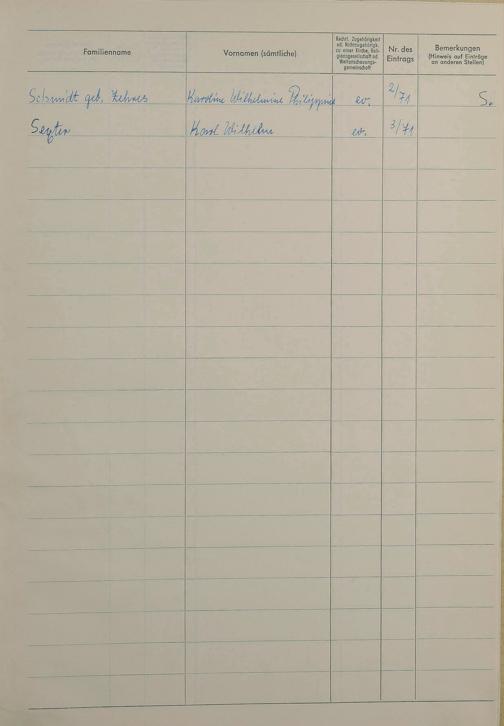 Familienname
Vornamen (sämtliche)
Rechtl. Zugehörigkeit
od. Nichtzugehörigk.
zu einer Kirche, Reli-
gionsgesellschaft od.
Weltanschauungs-
gemeinschaft
Nr. des
Eintrags
Bemerkungen
(Hinweis auf Einträge
an anderen Stellen)
Schmidt geb. Karoline Wilhelmine Philippine ev. 2/71 S.
Karl Wilhelm ev. 3/71